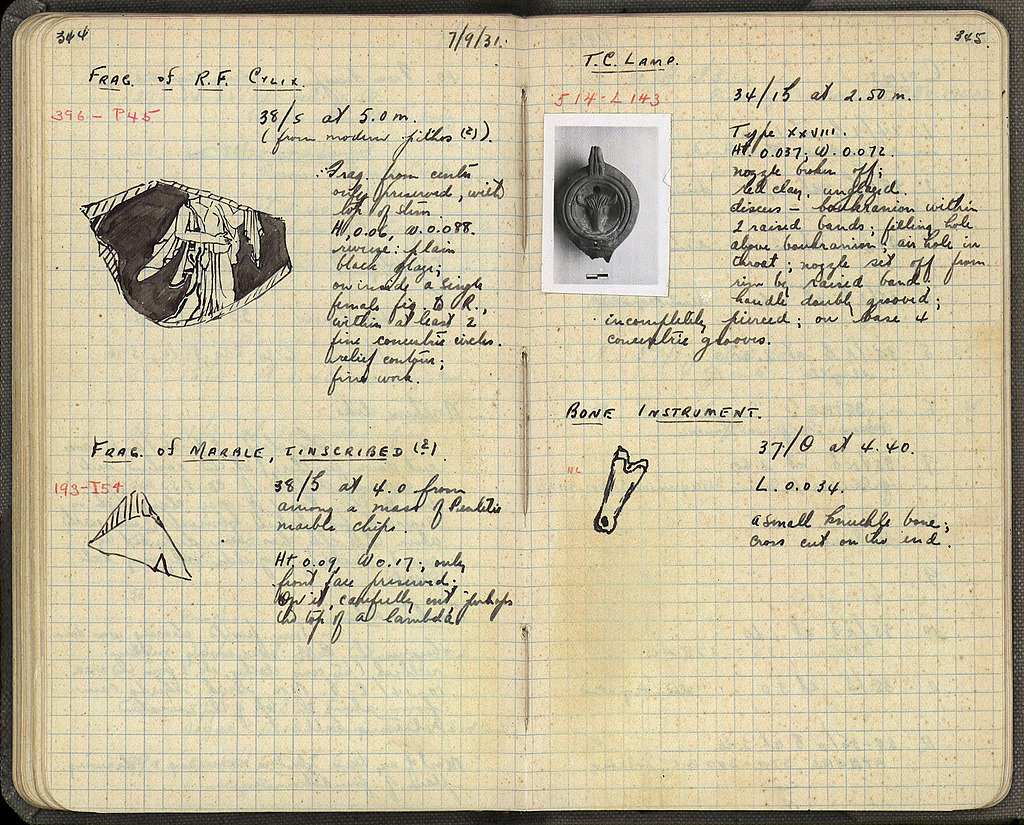 344
7/9/31.
FRAG. of R.F. CYLIX.
396 - P45
38/5 at 5.0 m.
(from modern pithos (?)).
Frag. from centre
only preserved, with
top of stem.
H. 0.06, W. 0.088.
reverse: plain
black glaze;
on inside a single
female fig. to R.,
within at least 2
fine concentric circles.
relief contour;
fine work.
FRAG. of MARBLE, INSCRIBED (?).
193-I54
38/5 at 4.0 from
among a mass of Pentelic
marble chips.
Ht. 0.09, W 0.17; only
front face preserved;
On it, carefully cut perhaps
the top of a lambda
345.
T.C. LAMP.
514-L143
34/15 at 2.50 m.
Type XXVIII.
Ht. 0.037; W. 0.072.
nozzle broken off;
red clay, unglazed.
discus - boukranion within
2 raised bands; filling hole
above boukranion; air hole in
throat; nozzle set off from
rim by raised band.
handle doubly grooved;
incompletely pierced; on base 4
concentric grooves.
BONE INSTRUMENT.
NC
37/Θ at 4.40.
L. 0.034.
a small knuckle bone;
cross cut on the end.